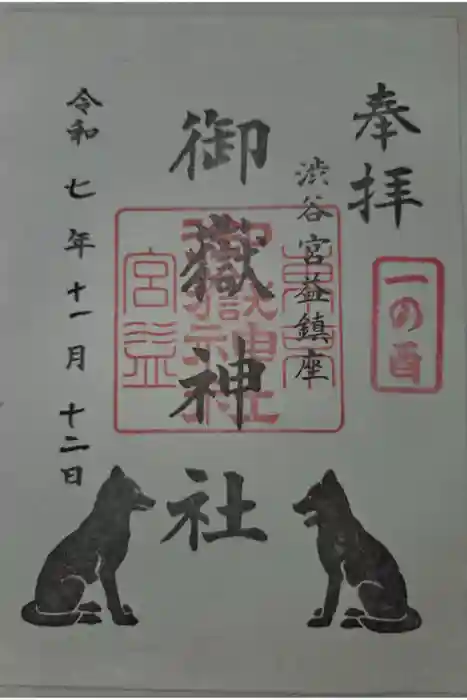 奉拝
一の酉
渋谷宮益鎮座
御嶽神社
東京
御嶽神社
宮益
令和七年十一月十二日